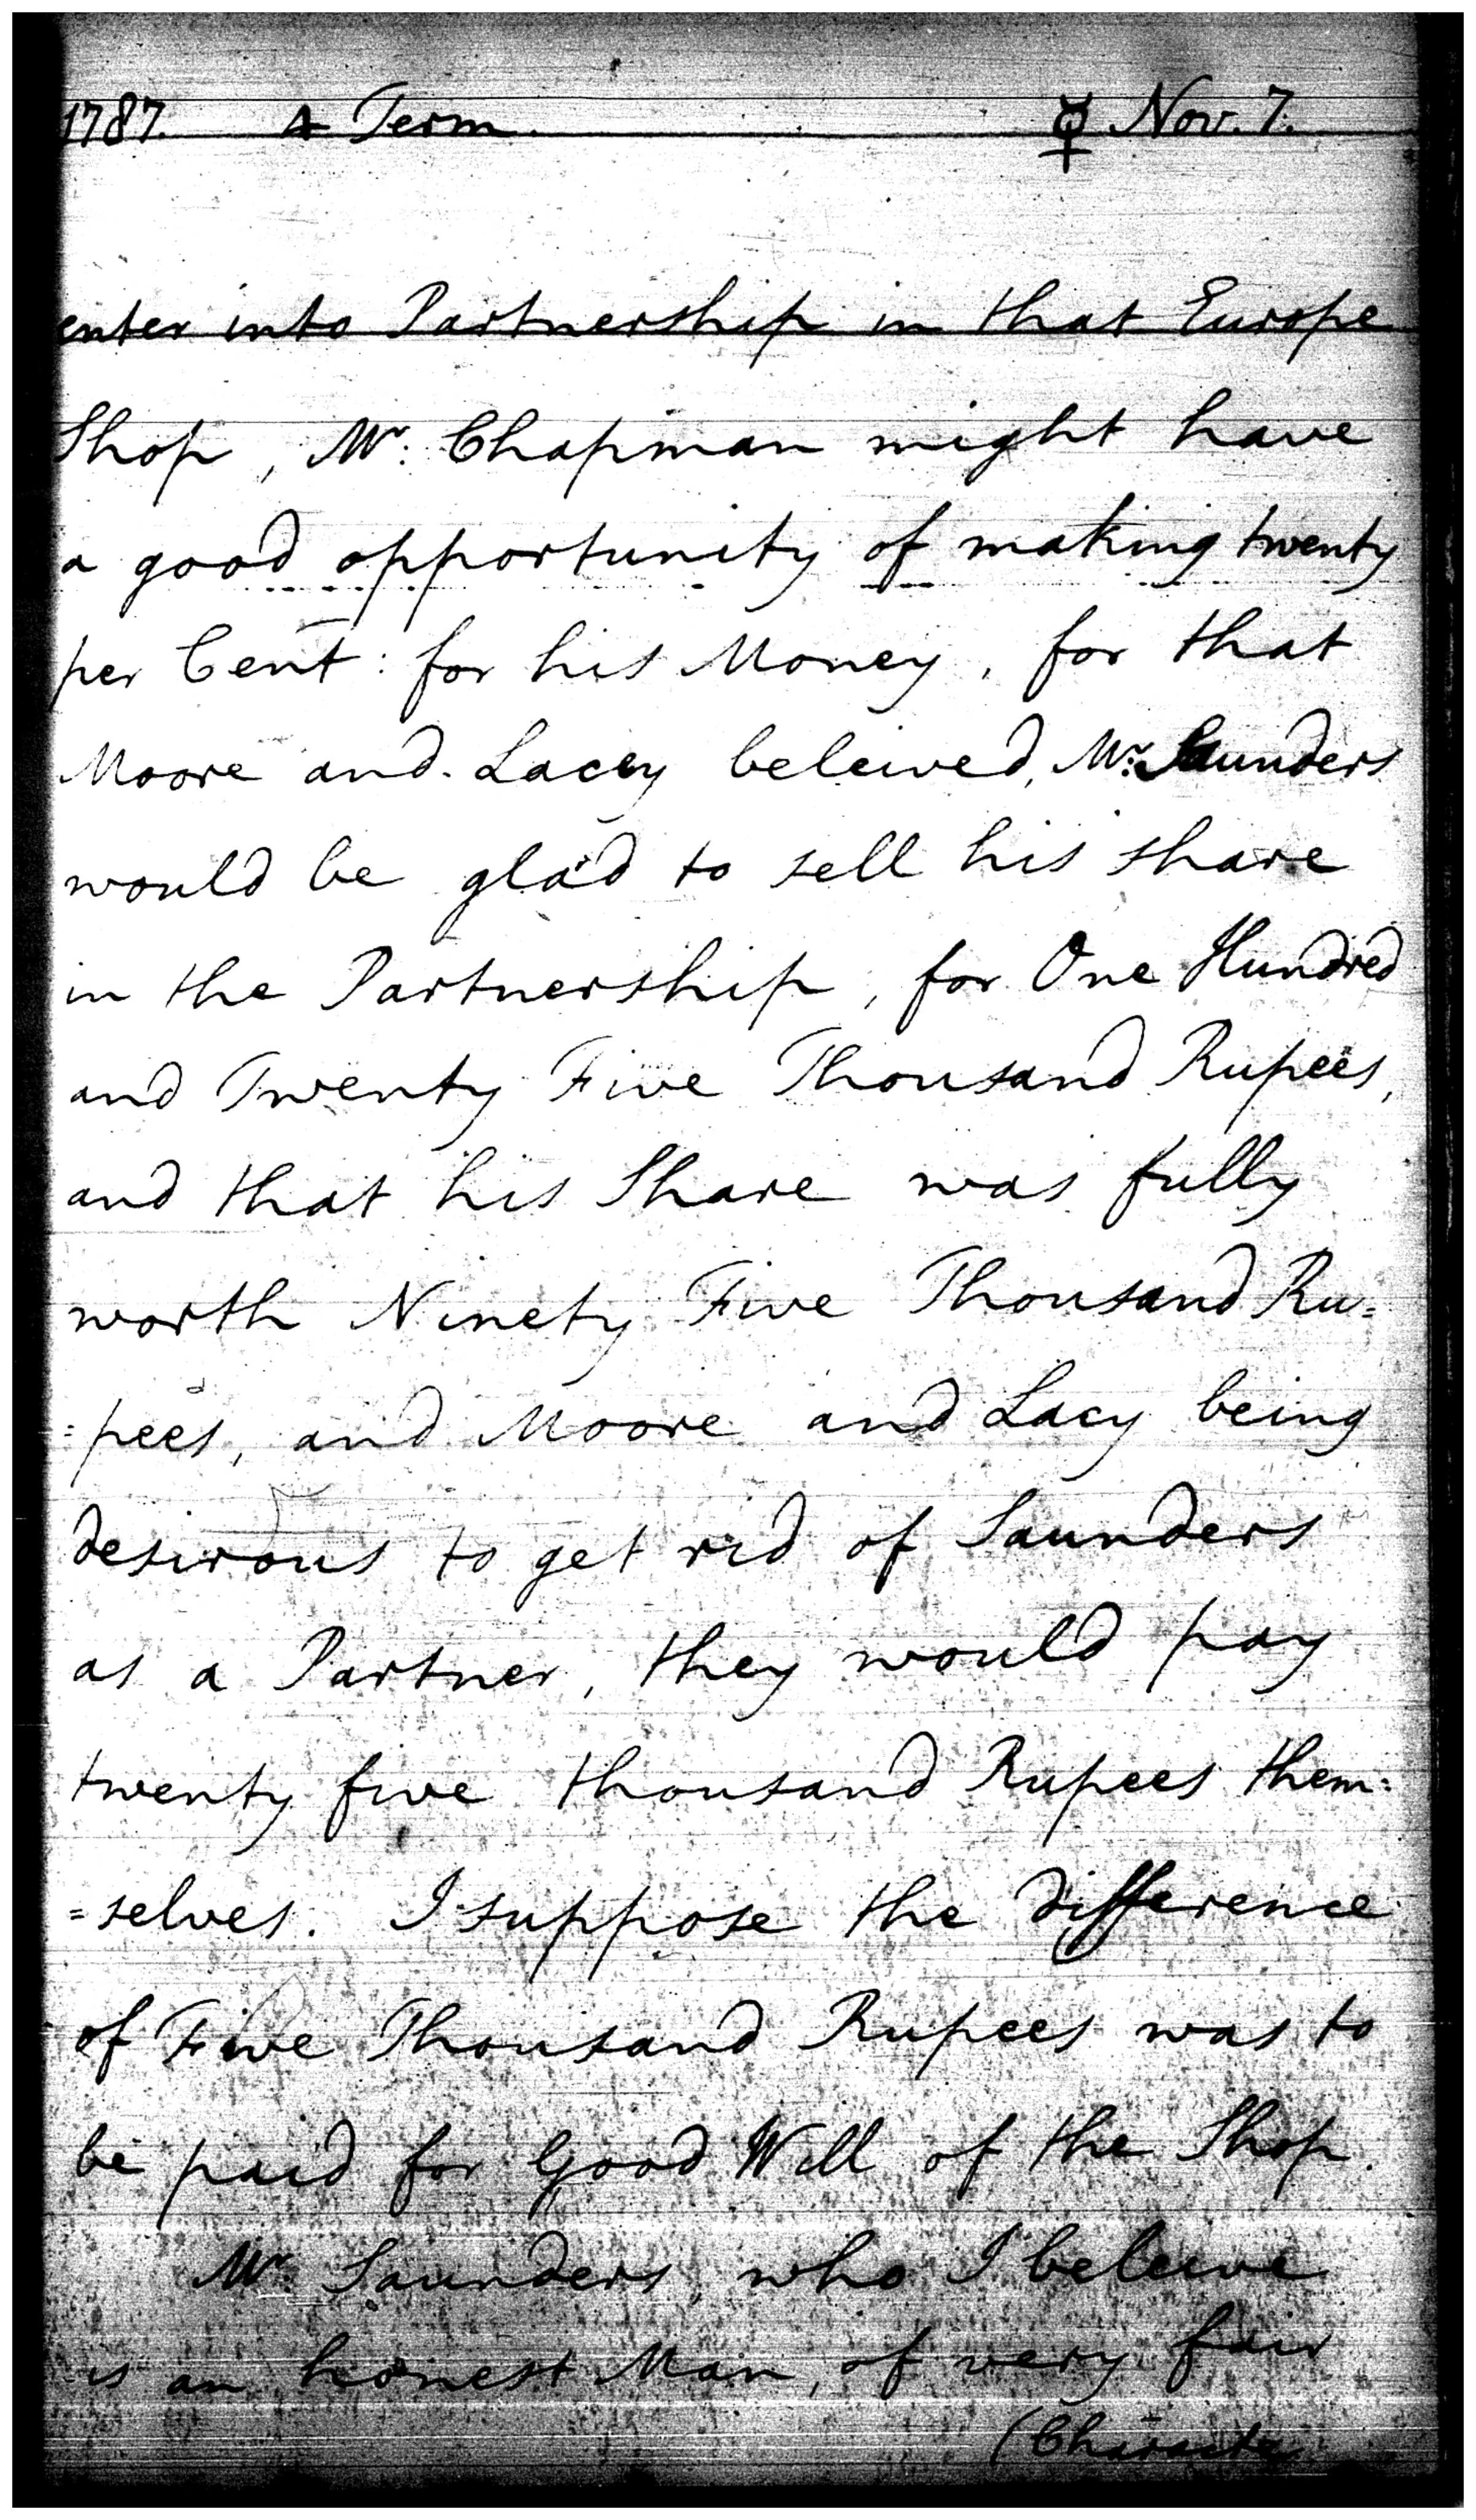 1787. 4 Term. ☿ Nov. 7.
enter into Partnership in that Europe
Shop, Mr. Chapman might have
a good opportunity of making twenty
per Cent: for his Money, for that
Moore and Lacey beleived, Mr. Saunders
would be glad to sell his share
in the Partnership, for One Hundred
and Twenty Five Thousand Rupees,
and that his Share was fully
worth Ninety Five Thousand Ru=
=pees, and Moore and Lacy being
desirous to get rid of Saunders
as a Partner, they would pay
twenty five thousand Rupees them=
=selves. I suppose the difference
of Five Thousand Rupees was to
be paid for Good Will of the Shop.
Mr. Saunders, who I beleive
is an honest Man, of very fair
(Character